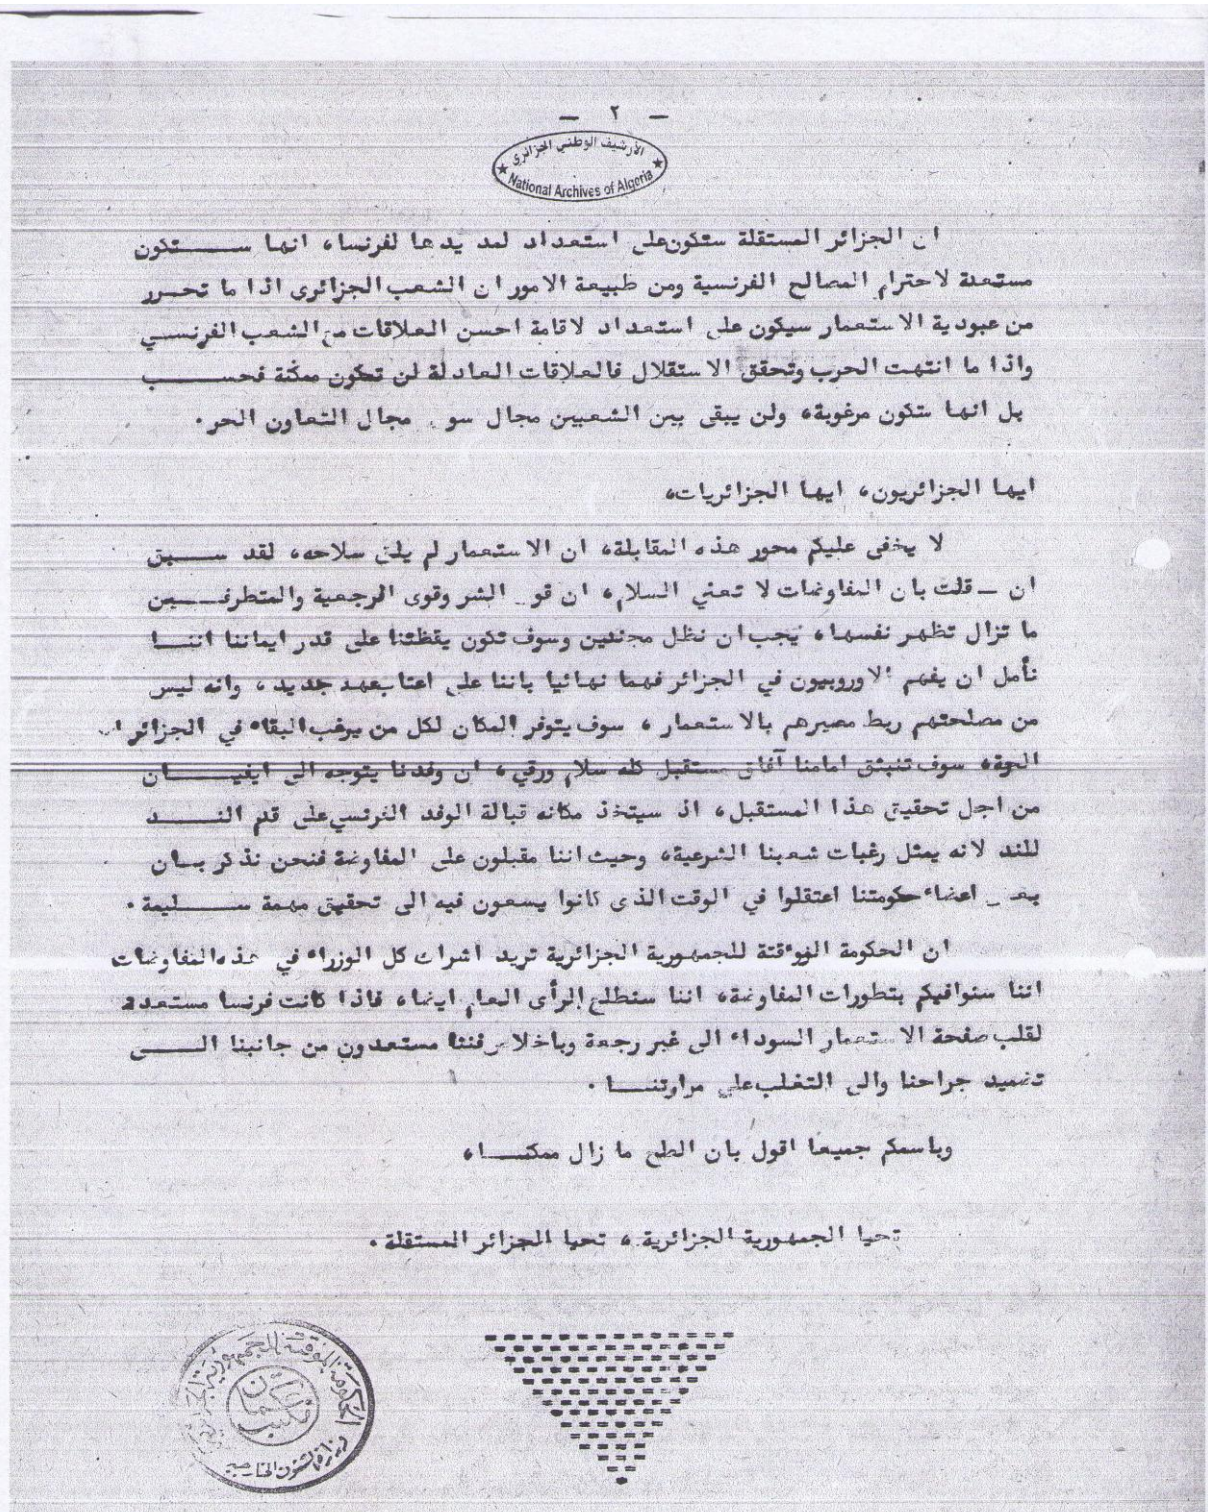 — ٢ —
الأرشيف الوطني الجزائري
National Archives of Algeria
ان الجزائر المستقلة ستكون على استعداد لمد يدها لفرنسا، انها ســـتكون
مستعدة لاحترام المصالح الفرنسية ومن طبيعة الامور ان الشعب الجزائرى اذا ما تحـرر
من عبودية الاستعمار سيكون على استعداد لاقامة احسن العلاقات مع الشعب الفرنســي
واذا ما انتهت الحرب وتحقق الاستقلال فالعلاقات العادلة لن تكون ممكنة فحســـب
بل انها ستكون مرغوبة، ولن يبقى بين الشعبين مجال سو مجال التعاون الحر.
ايها الجزائريون، ايها الجزائريات،
لا يخفى عليكم محور هذه المقابلة، ان الاستعمار لم يلق سلاحه، لقد ســـبق
ان ــ قلت بان المفاوضات لا تعني السلام، ان قو الشر وقوى الرجعية والمتطرفــين
ما تزال تظهر نفسها، يجب ان نظل مجندين وسوف تكون يقظتنا على قدر ايماننا اننـــا
نأمل ان يفهم الاوروبيون في الجزائر فهما نهائيا باننا على اعتاب عهد جديد، وانه ليس
من مصلحتهم ربط مصيرهم بالاستعمار، سوف يتوفر المكان لكل من يرغب البقاء في الجزائر
الحرة، سوف تنبثق امامنا آفاق مستقبل كله سلام ورقي، ان وفدنا يتوجه الى ايفيـــان
من اجل تحقيق هذا المستقبل، اذ سيتخذ مكانه قبالة الوفد الفرنسي على قدم النـــد
للند لانه يمثل رغبات شعبنا الشرعية، وحيث اننا مقبلون على المفاوضة فنحن نذكر بـــان
بعـ اعضاء حكومتنا اعتقلوا في الوقت الذى كانوا يسعون فيه الى تحقيق مهمة ســـليمة.
ان الحكومة المؤقتة للجمهورية الجزائرية تريد اشراك كل الوزراء في هذه المفاوضات
اننا سنوافيكم بتطورات المفاوضة، اننا سنطلع الرأى العام ايضا، فاذا كانت فرنسا مستعدة
لقلب صفحة الاستعمار السوداء الى غير رجعة وباخلاص فنننا مستعدون من جانبنا الـــى
تضميد جراحنا والى التغلب على مراوتنـــا.
وباسمكم جميعا اقول بان الطح ما زال ممكنـــا،
تحيا الجمهورية الجزائرية، تحيا الجزائر المستقلة.
الحكومة الموقتة للجمهورية الجزائرية
مكتب
وزارة الشئون الخارجية